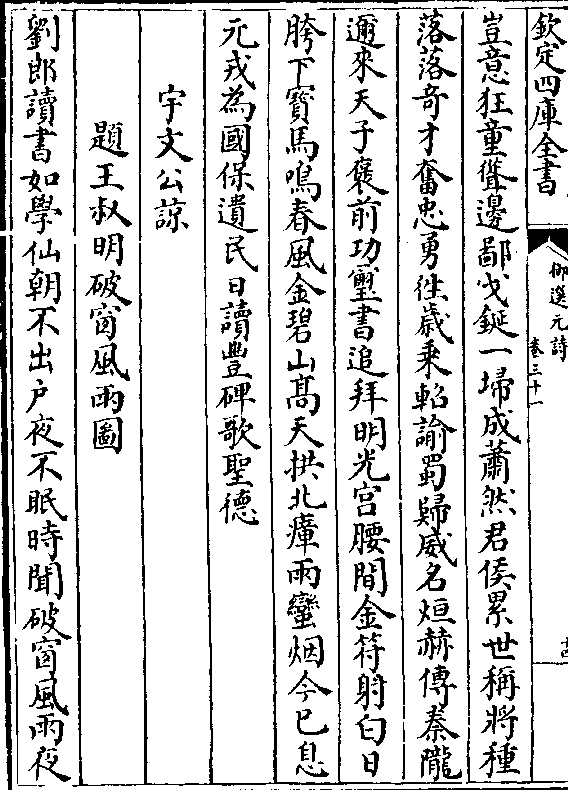 欽定四庫全書
御選元詩
卷三十一
豈意狂童聳邊鄙戈鋋一埽成蕭然君侯累世稱將種
落落奇才奮忠勇徃歳乗軺諭蜀歸威名烜赫傳秦隴
邇來天子襃前功璽書追拜明光宮腰間金符射白日
胯下寳馬鳴春風金碧山髙天拱北瘴雨蠻烟今已息
元戎為國保遺民日讀豐碑歌聖德
宇文公諒
題王叔明破窗風雨圖
劉郎讀書如學仙朝不出户夜不眠時聞破窗風雨夜